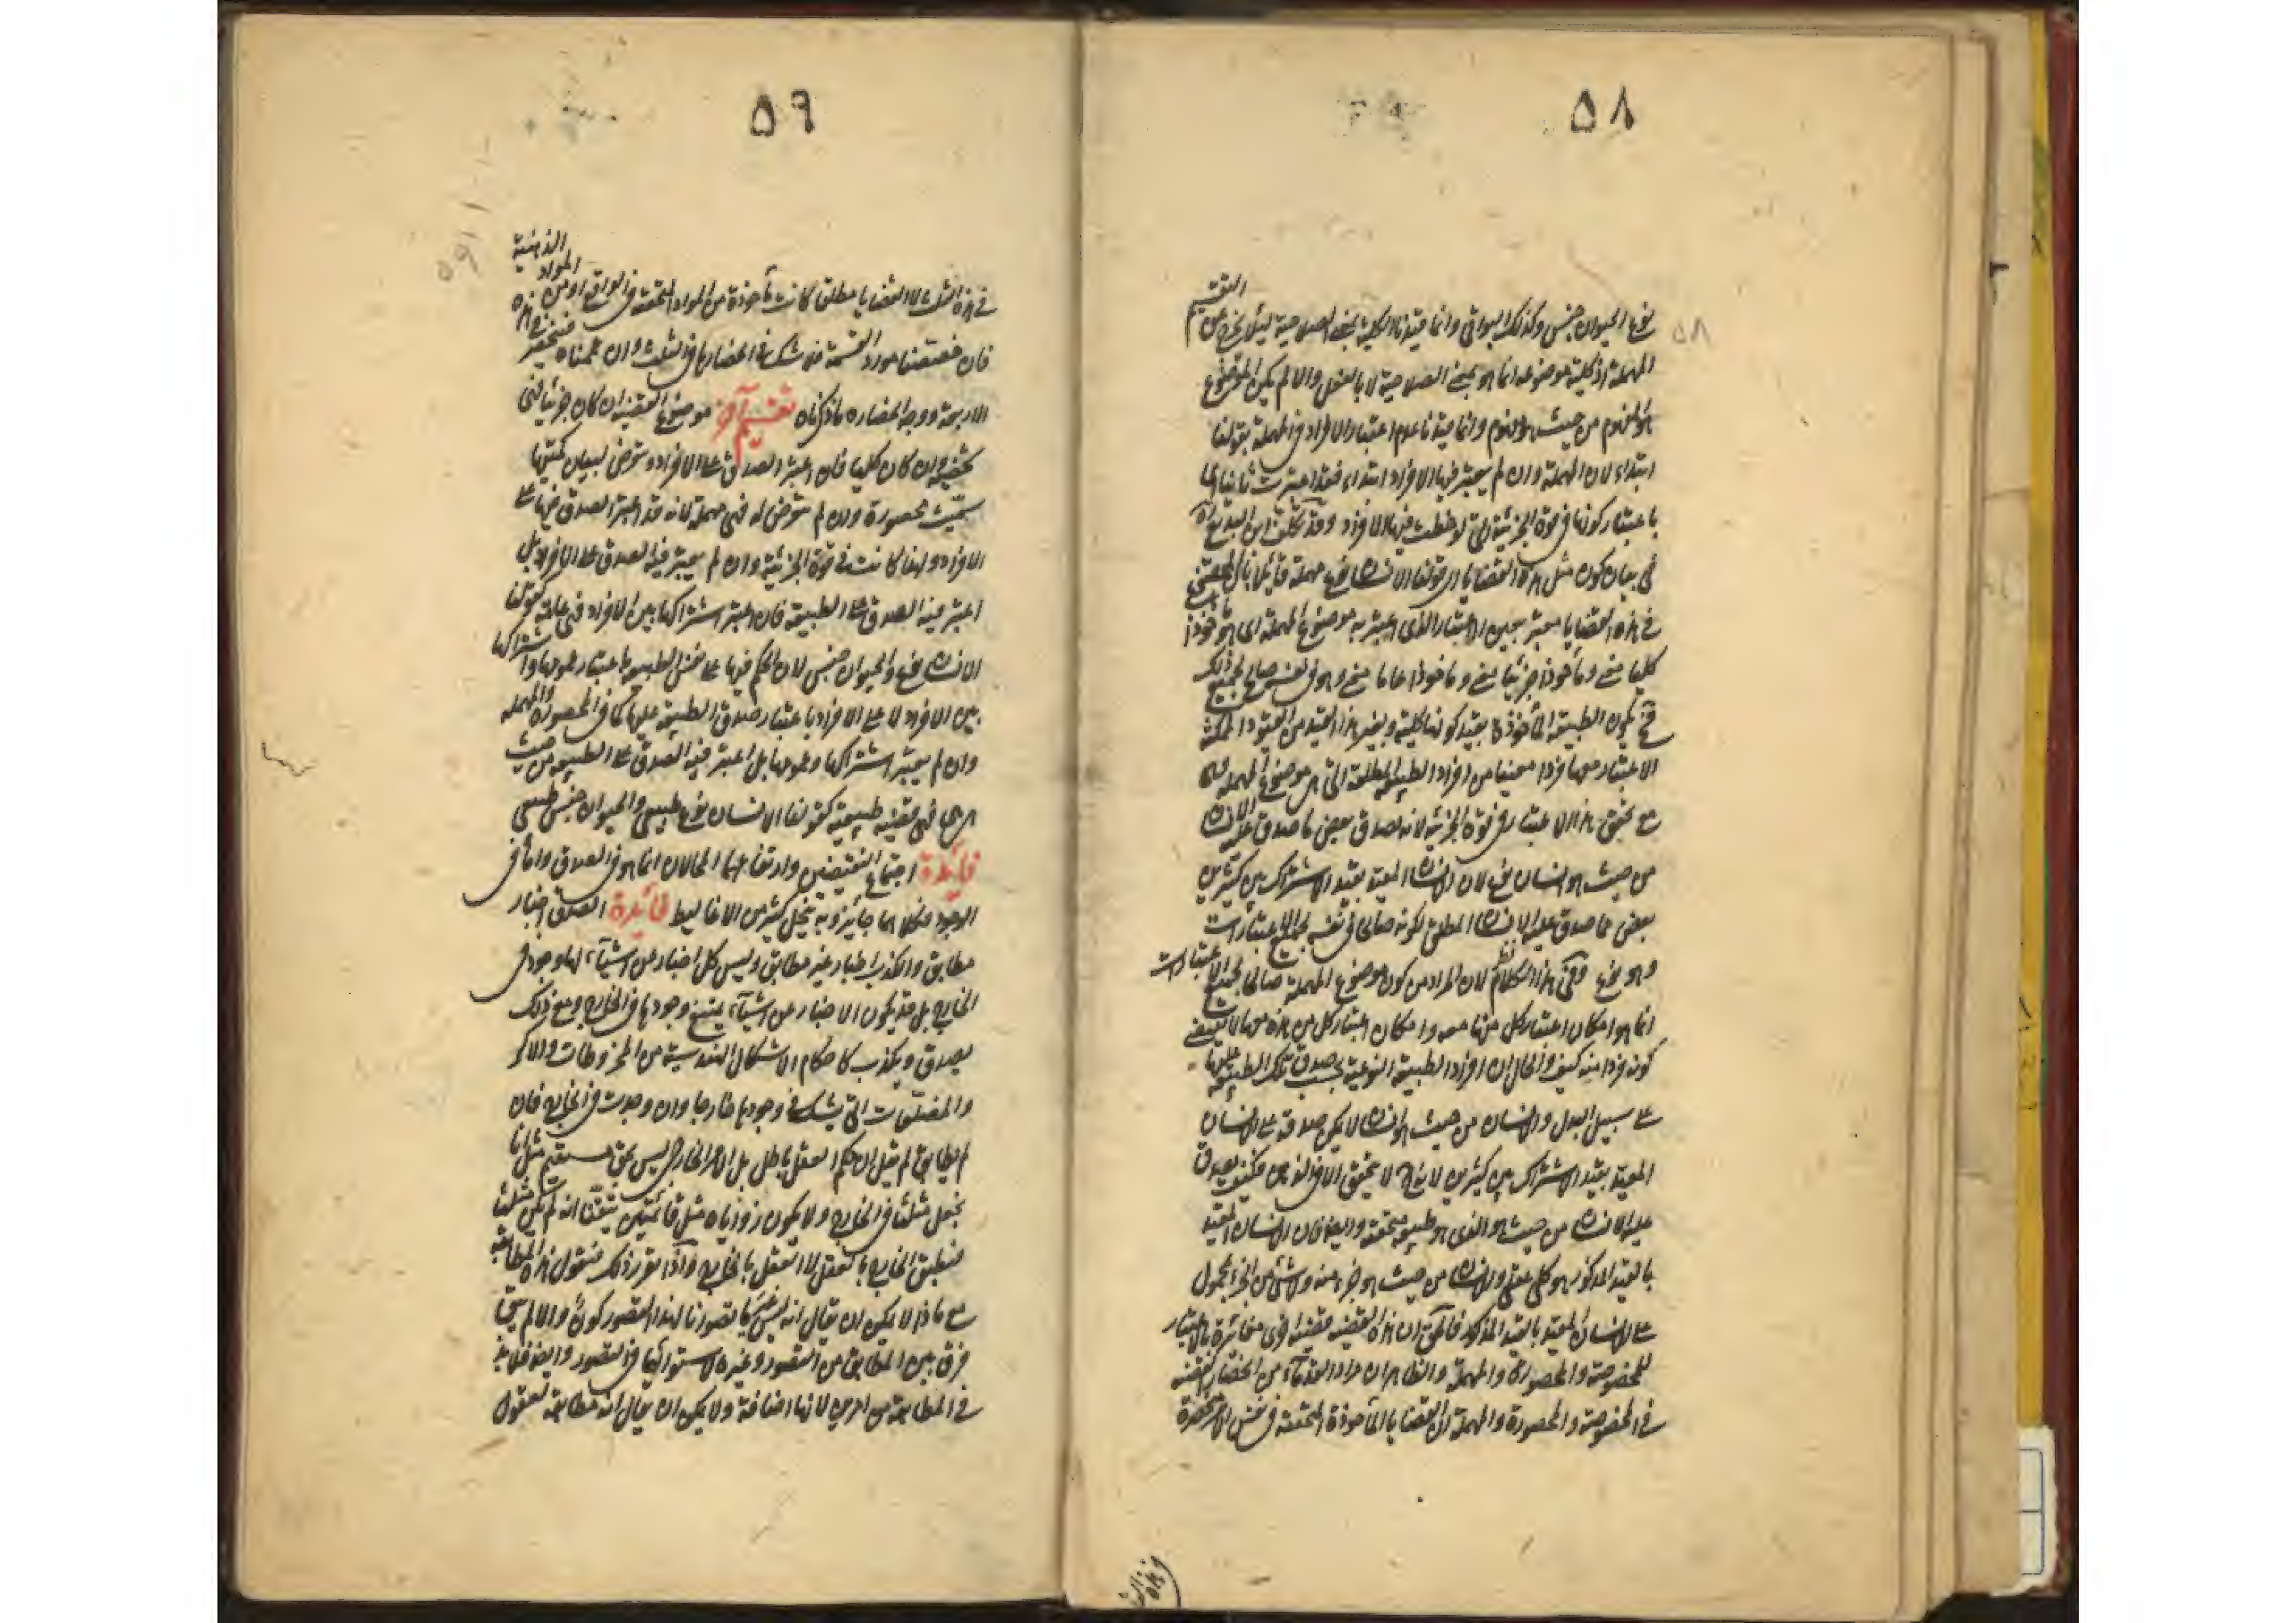 ٥٨
نوع الحيوان جنس وكذلك البواقي وانما قيدنا الكلية بمعنى الصلاحية ليلا يخرج من التقسيم
المهملة اذ كلية موضوعها انما هو بمعنى الصلاحية لا بالفعل والا لم يكن الموضوع
هو المفهوم من حيث هو المفهوم وانما قيدنا عدم اعتبار الافراد في المهملة بقولنا
ابتداء لان المهملة وان لم يعتبر فيها الافراد ابتداء فقد اعتبرت ثانيا
باعتبار كونها في قوة الجزئية التي لوحظت فيها الافراد وقد تكلف ابن البديع
في بيان كون مثل هذه القضايا اى قولنا الانسان نوع مهملة قايلا بان
في هذه القضايا معتبر بعين الاعتبار الذى اعتبر به موضوع المهملة اى هو مأخوذا
كليا منع ومأخوذا جزئيا منع وماخوذا عاما منع وهو في نفس صالح لجميع ذلك
فح يكون الطبيعة المأخوذة بقيد كونها كلية وبغير هذا القيد من القيود الممكنة
الاعتبار معها فردا معينا من افراد الطبيعة المطلقة التى هى موضوع المهملة
مع تحقق هذا الاعتبار في قوة الجزئية لانه يصدق بعض ما صدق عليه الانسان
من حيث هو انسان نوع لان الانسان المقيد بقيد الاشتراك بين كثيرين
بعض مما صدق عليه الانسان المطلق لكونه صالحا في نفسه لجميع الاعتبارات
وهو نوع وفي هذا الكلام نظر لان المراد من كون موضوع المهملة صالحا لجميع الاعتبارات
انما هو امكان اعتبار كل منها معه وامكان اعتبار كل من هذه معها لا يقتضي
كونه فردا منه كيف والحال ان افراد الطبيعة النوعية بحسب صدق تلك الطبيعة عليها
على سبيل البدل والانسان من حيث هو انسان لا يمكن صدقه على الانسان
المقيد بقيد الاشتراك بين كثيرين لا يتحقق الا في الذهن فكيف يصدق
عليه الانسان من حيث هو الذى هو طبيعة محققة وايضا فان الانسان المقيد
بالقيد المذكور هو كلى عقلى والانسان من حيث هو جزء منه ولا شئ من الجزء بمحمول
على الانسان المقيد بالقيد المذكور فالحق ان هذه القضية قضية اخرى مغايرة بالاعتبار
للمخصوصة والمحصورة والمهملة والظاهر ان مراد القدماء من انحصار القضية
في المخصوصة والمحصورة والمهملة ان القضايا المأخوذة المحققة في نفس الامر منحصرة
٥٩
في هذه الثلث لا القضايا مطلقا كانت مأخوذة من المواد المحققة في الواقع او من المواد الذهنية
فان خصصنا مورد القسمة فلا شك في انحصارها في الثلث وان عممناه فتنحصر في هذه
الاربعة ووجه انحصاره ما ذكرناه تقسيم آخر موضوع القضية ان كان جزئيا فهى
شخصية وان كان كليا فان اعتبر الصدق على الافراد وتعرض لبيان كميتها
سميت محصورة وان لم تتعرض له فهى مهملة لانه قد اعتبر الصدق فيها على
الافراد ولهذا كانت في قوة الجزئية وان لم يعتبر فيه الصدق على الافراد بل
اعتبر فيه الصدق على الطبيعة فان اعتبر اشتراكها بين الافراد فهى عامة كقولنا
الانسان نوع والحيوان جنس لان الحكم فيها على نفس الطبيعة باعتبار عمومها واشتراكها
بين الافراد لا على الافراد باعتبار صدق الطبيعة عليها كما في المحصورة والمهملة
وان لم يعتبر اشتراكها وعمومها بل اعتبر فيه الصدق على الطبيعة من حيث
هى هى فهى قضية طبيعية كقولنا الانسان نوع طبيعى والحيوان جنس طبيعى
فائدة اجتماع النقيضين وارتفاعهما المحالان انما هو في الصدق واما في
الوجود فكلاهما جائز وبه ينحل كثير من الاغاليط فائدة الصدق اخبار
مطابق والكذب اخبار غير مطابق وليس كل اخبار عن اشيآء لها وجود في
الخارج بل قد يكون الاخبار عن اشيآء يمتنع وجودها في الخارج ومع ذلك
يصدق ويكذب كاحكام الاشكال الهندسية من المخروطات والاكر
والمضلعات التى يشك في وجودها خارجا وان وجدت في الخارج فان
لم يطابق لم نقل ان حكم العقل باطل بل الامر الخارجى ليس بحق مستقيم مثلا انا
نجعل مثلثا في الخارج ولا يكون زواياه مثل قائمتين تيقنا انه لم يكن مثلثا
فنطبق الخارج بالتعقل لا التعقل بالخارج واذا تقرر ذلك فنقول هذه المطابقة
مع ماذا لا يمكن ان يقال انه لتصورنا لهذا التصور كون والا لم يبق
فرق بين المطابق من التصور وغيره لاستوائهما في التصور وايضا فلا بد
في المطابقة من امرين لانها اضافة ولا يمكن ان يقال انه مطابقة لمعقول